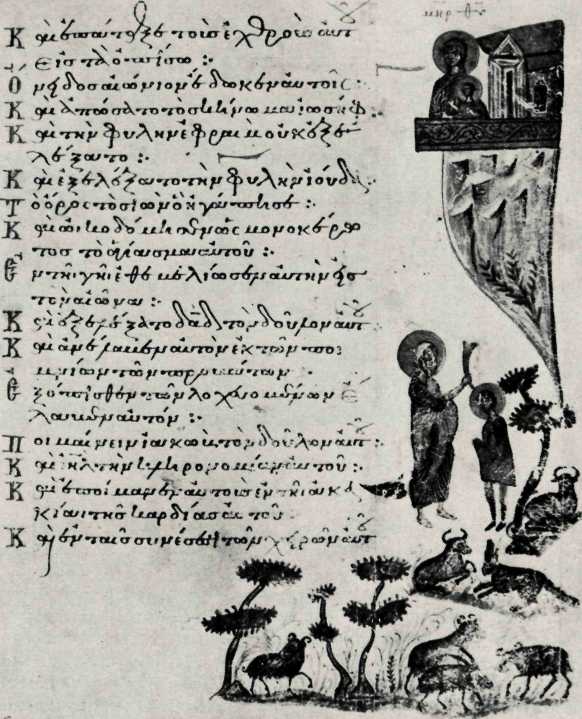 μηρ θυ
Καὶ ἐπάταξε τοὺς ἐχθροὺς αὐτοῦ
εἰς τὰ ὀπίσω :·
Ὄνειδος αἰώνιον ἔδωκεν αὐτοῖς :·
Καὶ ἀπώσατο τὸ σκήνωμα ἰωσήφ :·
Καὶ τὴν φυλὴν ἐφραὶμ οὐκ ἐξε
λέξατο :·
Καὶ ἐξελέξατο τὴν φυλὴν ἰούδα :·
Τὸ ὄρος τὸ σιὼν ὃ ἠγάπησε :·
Καὶ ὠικοδόμησεν ὡς μονοκέρω
τος τὸ ἁγίασμα αὐτοῦ :·
Ἐν τῆι γῆι ἐθεμελίωσεν αὐτὴν εἰς
τὸν αἰῶνα :·
Καὶ ἐξελέξατο δαδ τὸν δοῦλον αὐτοῦ
Καὶ ἀνέλαβεν αὐτὸν ἐκ τῶν ποι
μνίων τῶν προβάτων
Ἐξόπισθεν τῶν λοχευομένων ἔ
λαβεν αὐτόν :·
Ποιμαίνειν ἰακὼβ τὸν δοῦλον αὐτοῦ :·
Καὶ ἰηλ τὴν κληρονομίαν αὐτοῦ :·
Καὶ ἐποίμανεν αὐτοὺς ἐν τῆι ἀκα
κίαι τῆς καρδίας αὐτοῦ
Καὶ ἐν ταῖς συνέσεσι τῶν χειρῶν αὐτοῦ